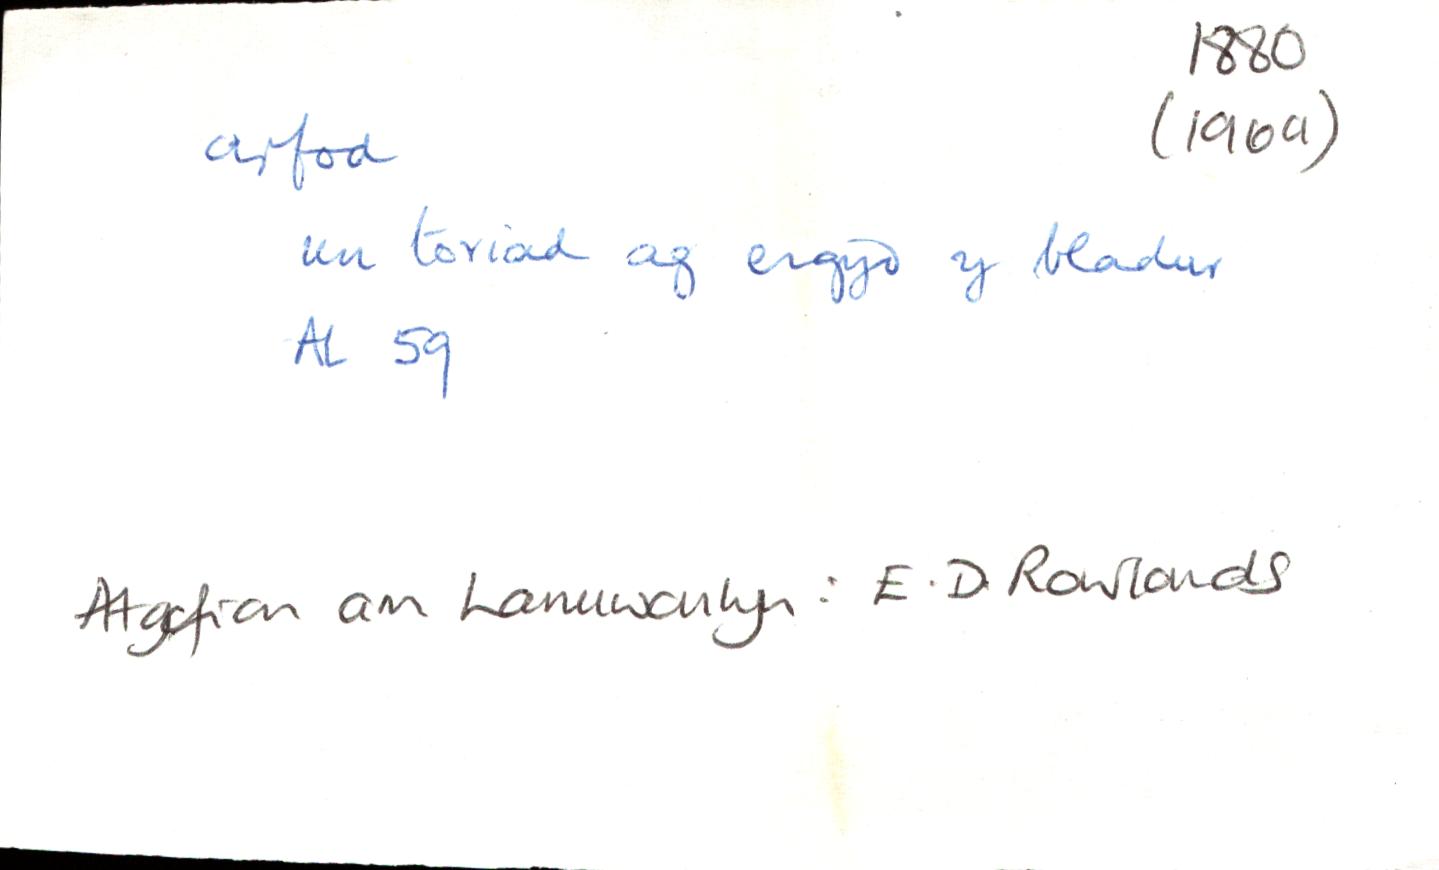 1880
(1969)
arfod
un toriad ag ergyd y bladur
AL 59
Atgofion am Lanuwchlyn : E. D. Rowlands